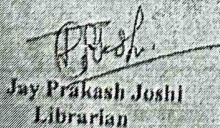 Jay Prakash Joshi
Librarian